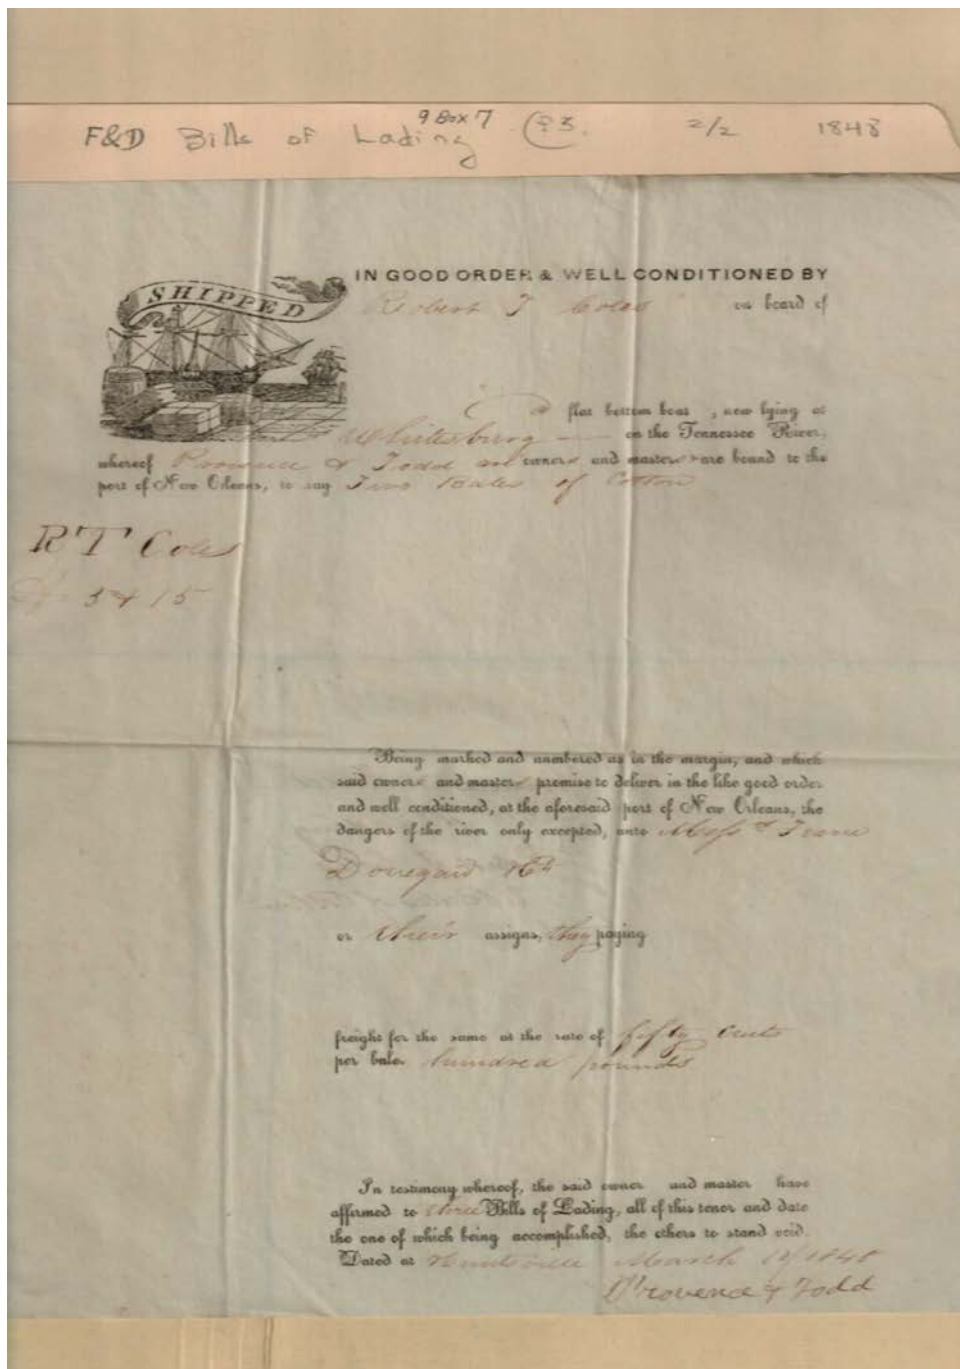 9 Box 7
F&D Bills of Lading P3. 2/2 1848
SHIPPED
IN GOOD ORDER & WELL CONDITIONED BY
Robert T Coles on board of
a flat bottom boat, now lying at
Whitesburg — on the Tennessee River,
whereof Provence & Todd are owners and masters are bound to the
port of New Orleans, to say Two Bales of Cotton
RT Coles
3 & 15
Being marked and numbered as in the margin, and which
said owners and masters promise to deliver in the like good order
and well conditioned, at the aforesaid port of New Orleans, the
dangers of the river only excepted, unto Messrs
or their assigns, they paying
freight for the same at the rate of fifty cents
per bale. hundred pounds
In testimony whereof, the said owner and master have
affirmed to three Bills of Lading, all of this tenor and date
the one of which being accomplished, the others to stand void.
Dated at Huntsville March 1848
Provence & Todd